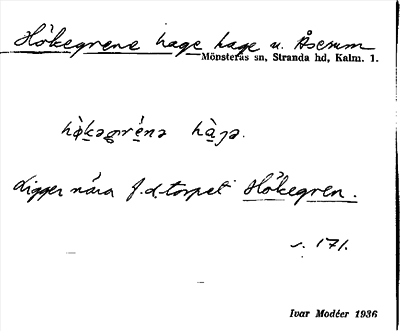 Hökegrens hage hage u. Åserum
Mönsterås sn, Stranda hd, Kalm. l.
hø̀kəgré̱nə hà̱gə.
Ligger nära f.d. torpet Hökegren.
s. 171.
Ivar Modéer 1936